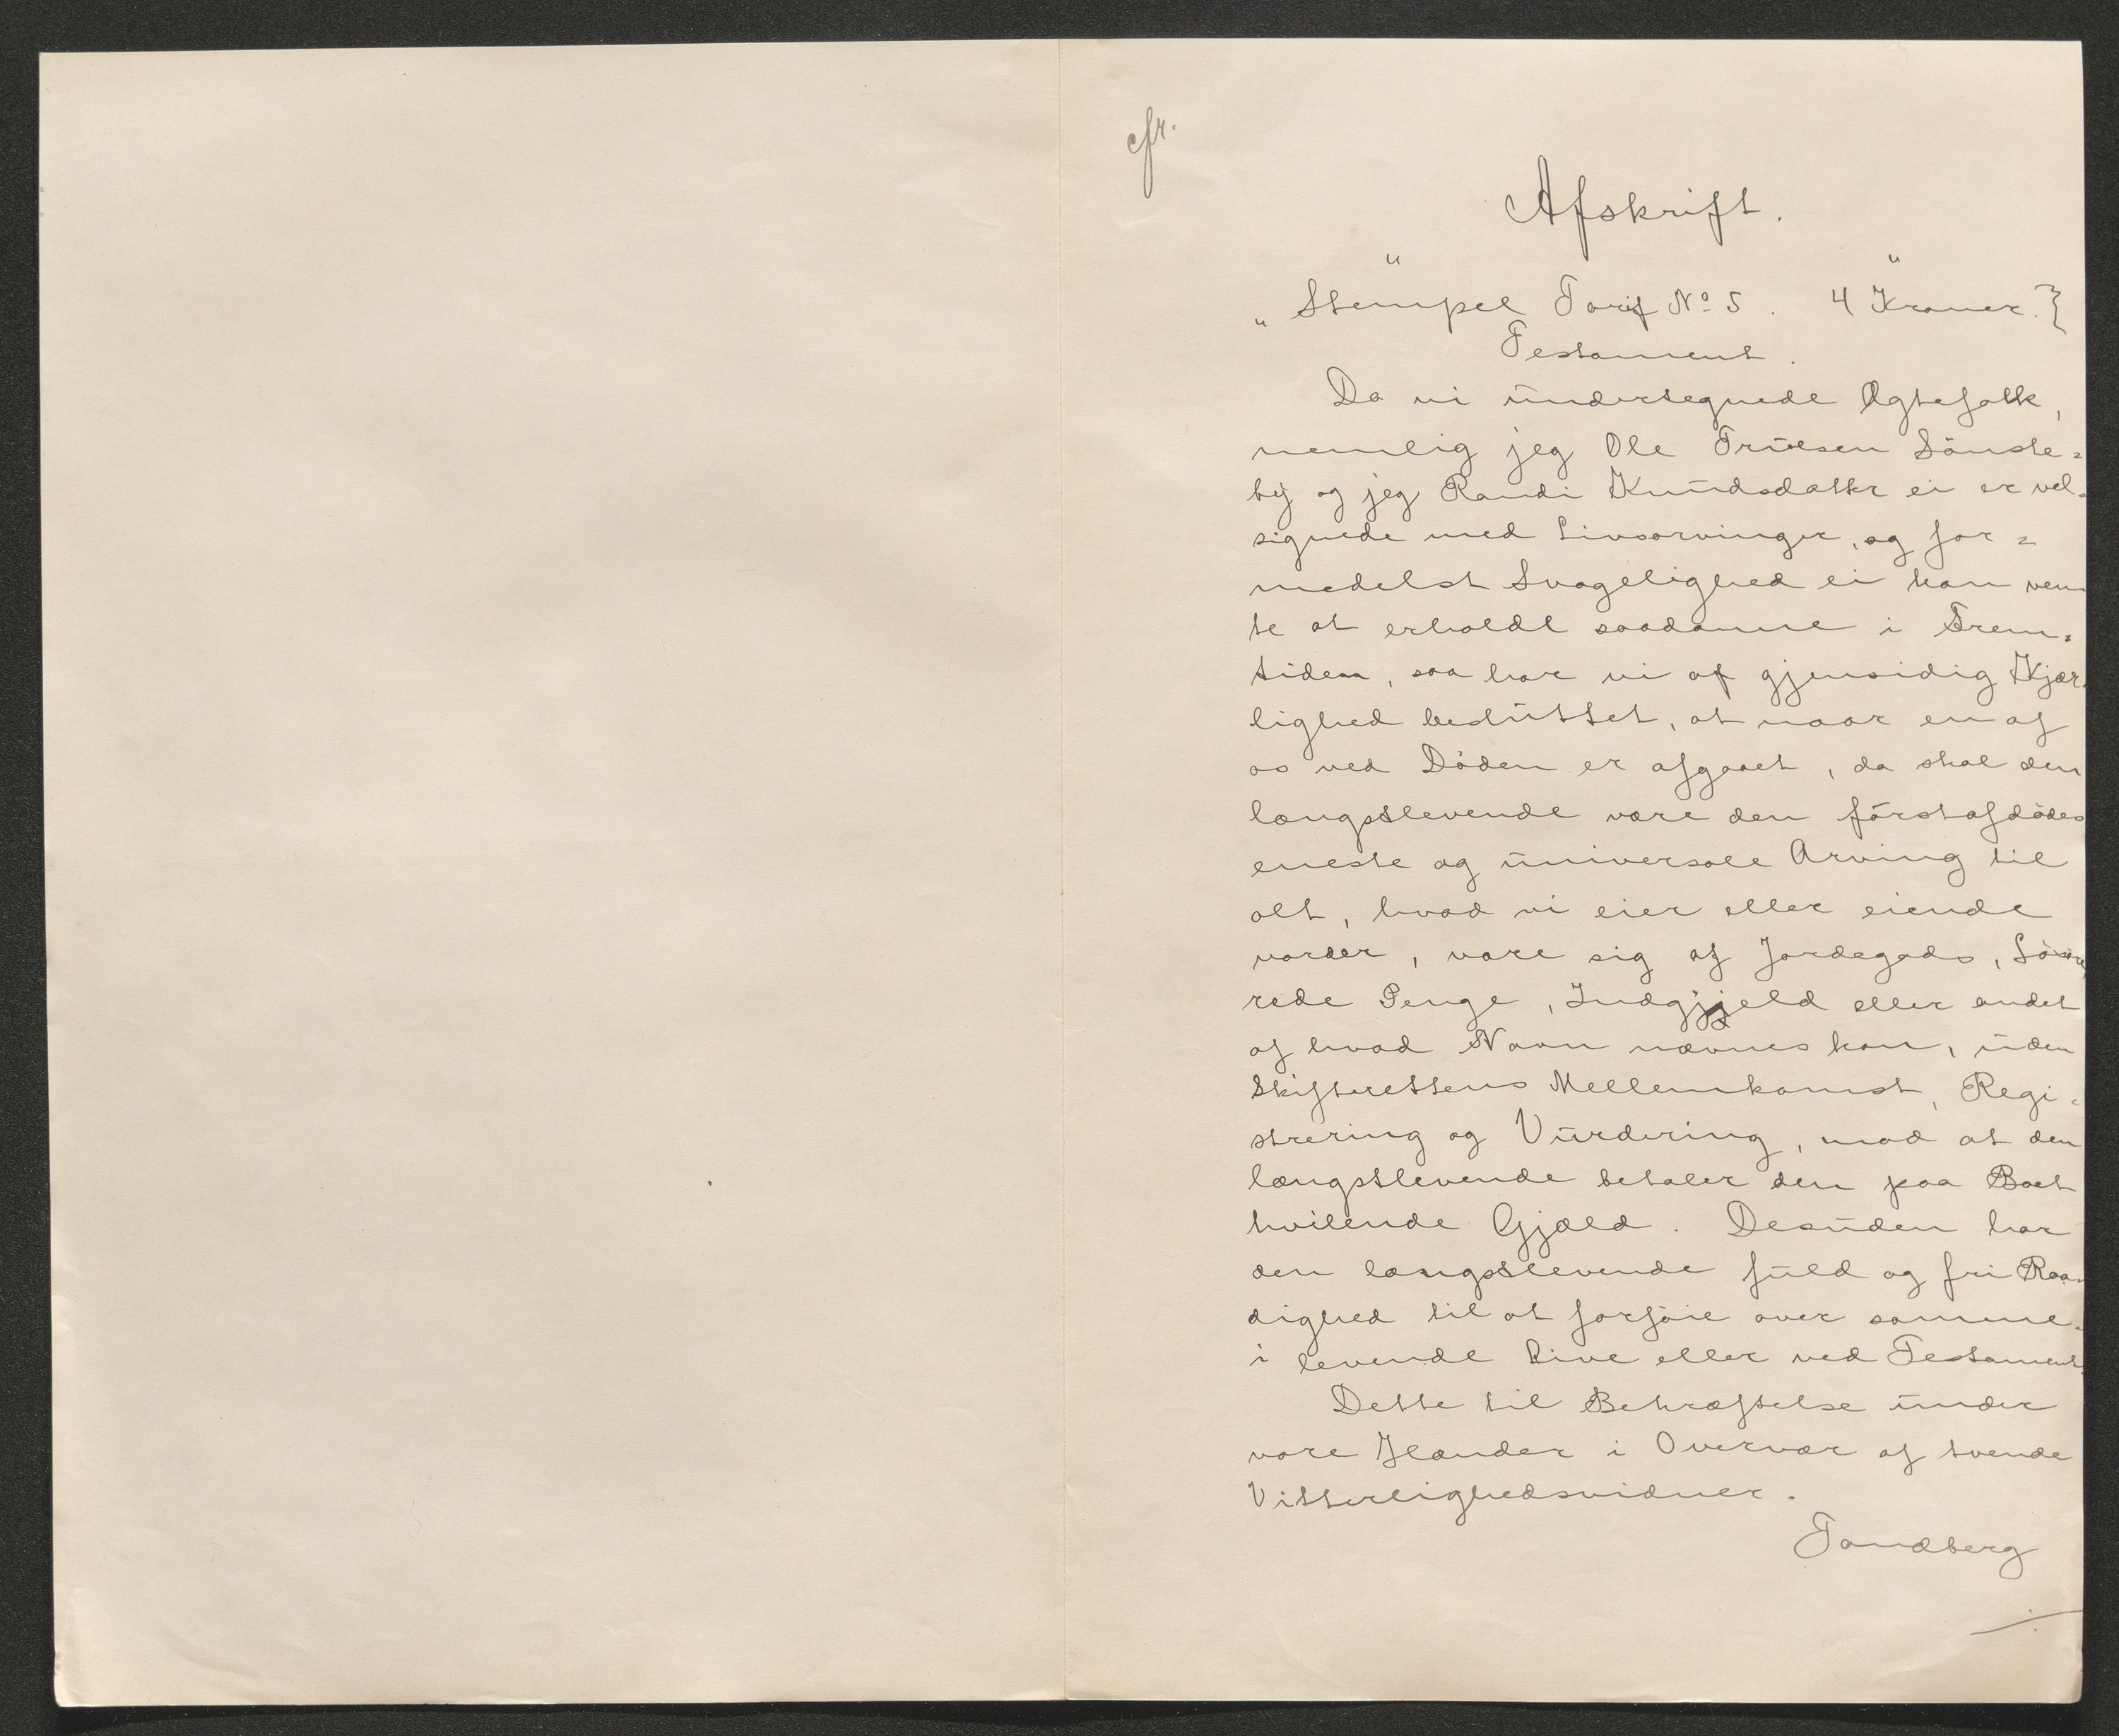 cfr.
Afskrift.
„Stempel Tarif No 5. 4 Kroner.}
Testament.
Da vi undertegnede Ægtefolk,
nemlig jeg Ole Trulsen Sönste=
by og jeg Randi Knudsdatter ei er vel=
signede med Livsarvinger, og for=
medelst Svagelighed ei kan ven
te at erholde saadanne i Frem=
tiden, saa har vi af gjensidig Kjær
lighed besluttet, at naar en af
os ved Döden er afgaaet, da skal den
længstlevende være den förstafdödes
eneste og universale Arving til
alt, hvad vi eier eller eiende
vorder, være sig af Jordegods, Lösöre,
rede Penge, Indgjæld eller andet
af hvad Navn nævnes kan, uden
Skifterettens Mellemkomst, Regi=
strering og Vurdering, mod at den
længstlevende betaler den paa Boet
hvilende Gjæld. Desuden har
den længstlevende fuld og fri Raa=
dighed til at forföie over samme
i levende Live eller ved Testament.
Dette til Bekræftelse under
vore Hænder i Overvær af tvende
Vitterlighedsvidner.
Tandberg